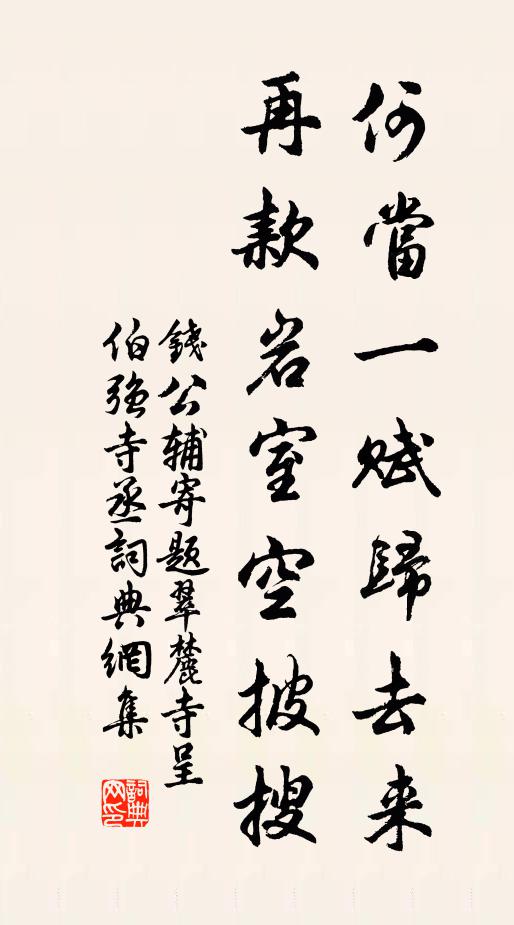 何當一赋歸去来
再款岩室空披搜
錢公辅寄题翠麓寺呈
伯强寺丞詞典網集
詞典網印